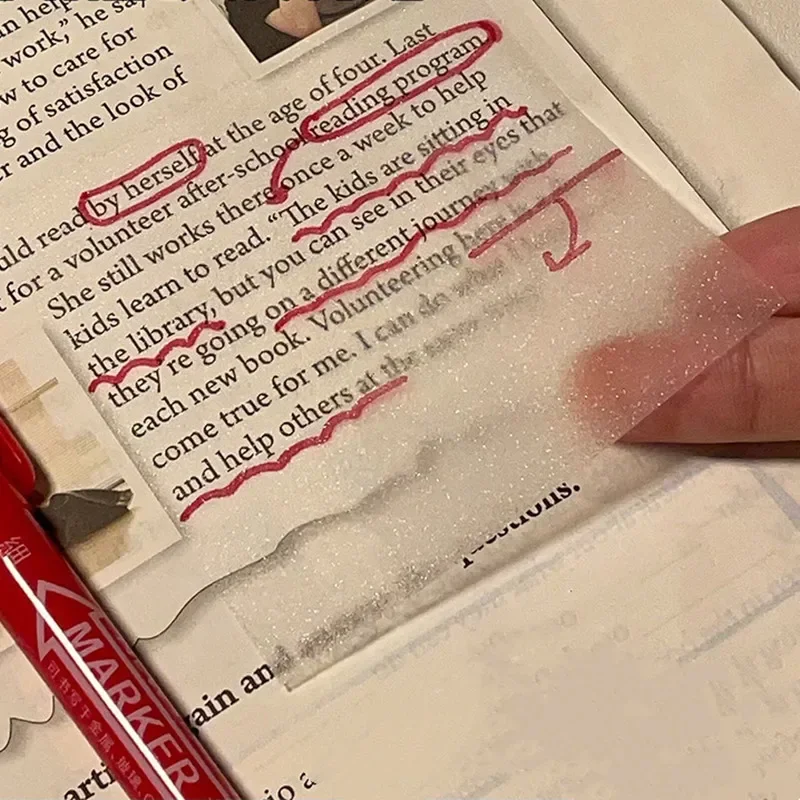 an help
work," he say
w to care for
g of satisfaction
r and the look of
at the age of four. Last
uld read by herself
for a volunteer after-school reading program.
She still works there once a week to help
kids learn to read. "The kids are sitting in
the library, but you can see in their eyes that
they're going on a different journey with
each new book. Volunteering here is a
come true for me. I can do what I
and help others at the same
questions.
gain and
MARKER
可书写于金属、玻璃
细